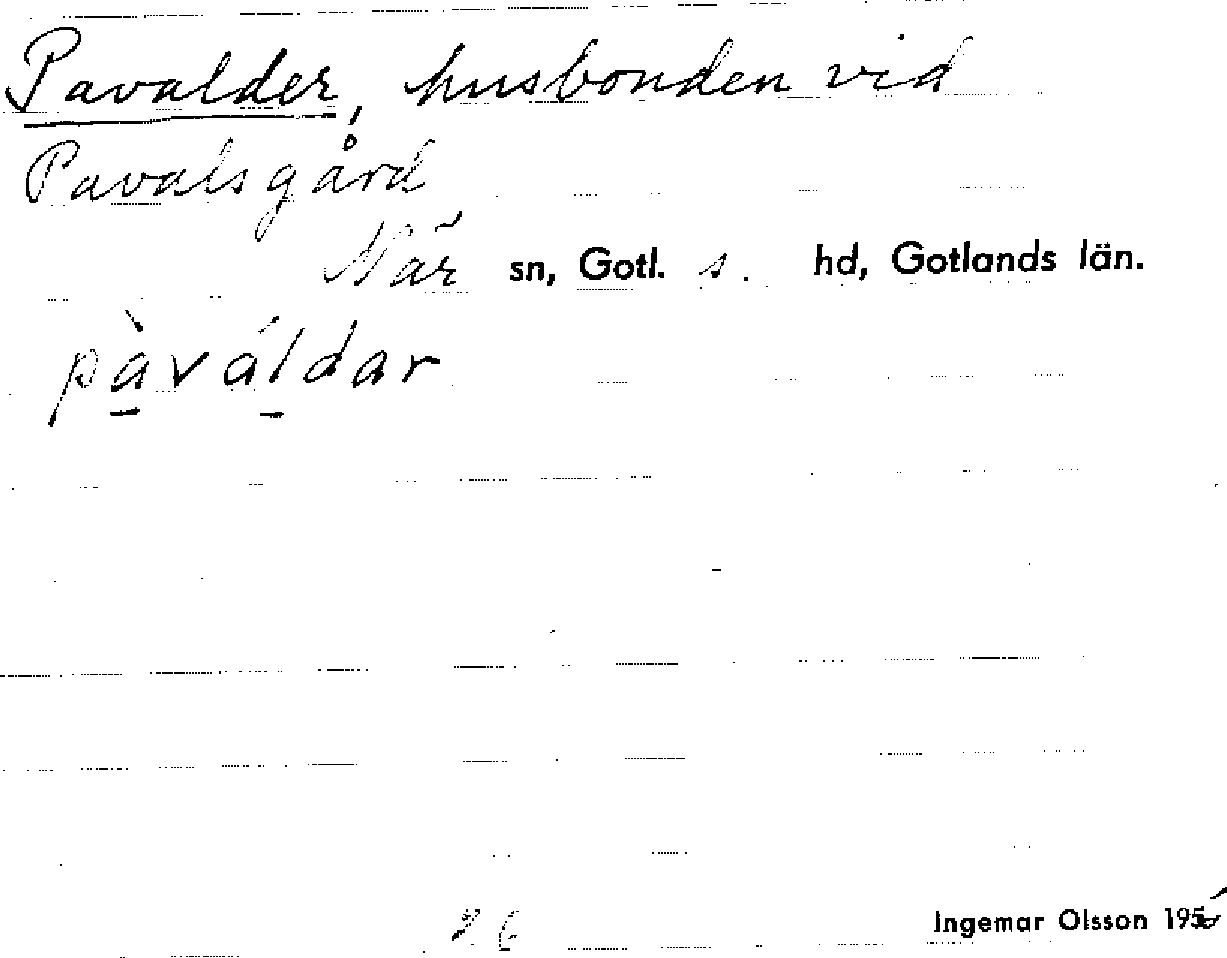 Pavalder, husbonden vid
Pavalsgård
När sn, Gotl. s. hd, Gotlands län.
pà̱vá̱ldar
26
Ingemar Olsson 1956